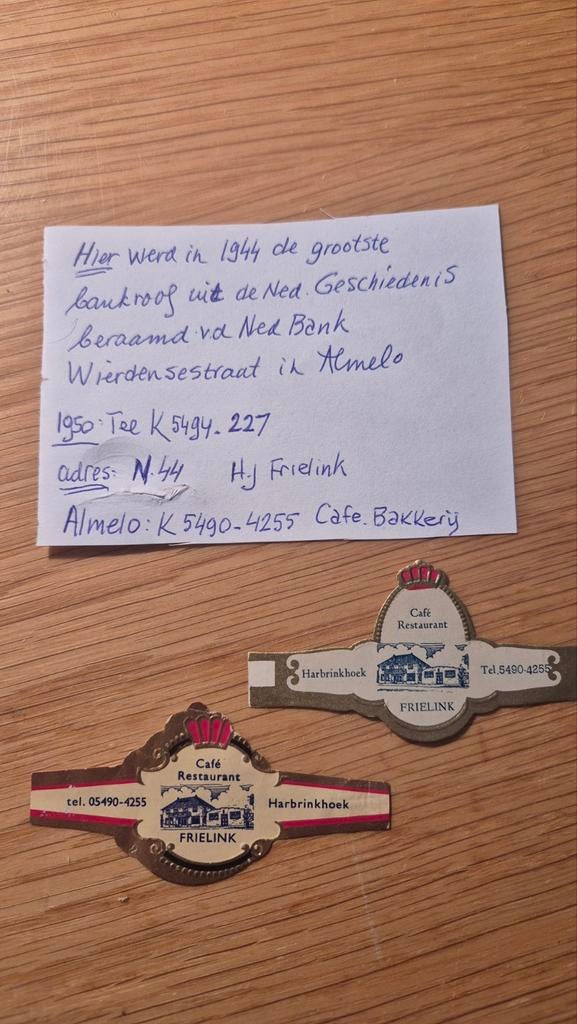 Hier werd in 1944 de grootste
bankroof uit de Ned. Geschiedenis
beraamd v.d Ned Bank
Wierdensestraat in Almelo
1950: Tee K 5494-227
adres: N.44 H.J Frielink
Almelo: K 5490-4255 Cafe. Bakkerij
Café
Restaurant
Harbrinkhoek
Tel.5490-4255
FRIELINK
Café
Restaurant
tel. 05490-4255
Harbrinkhoek
FRIELINK